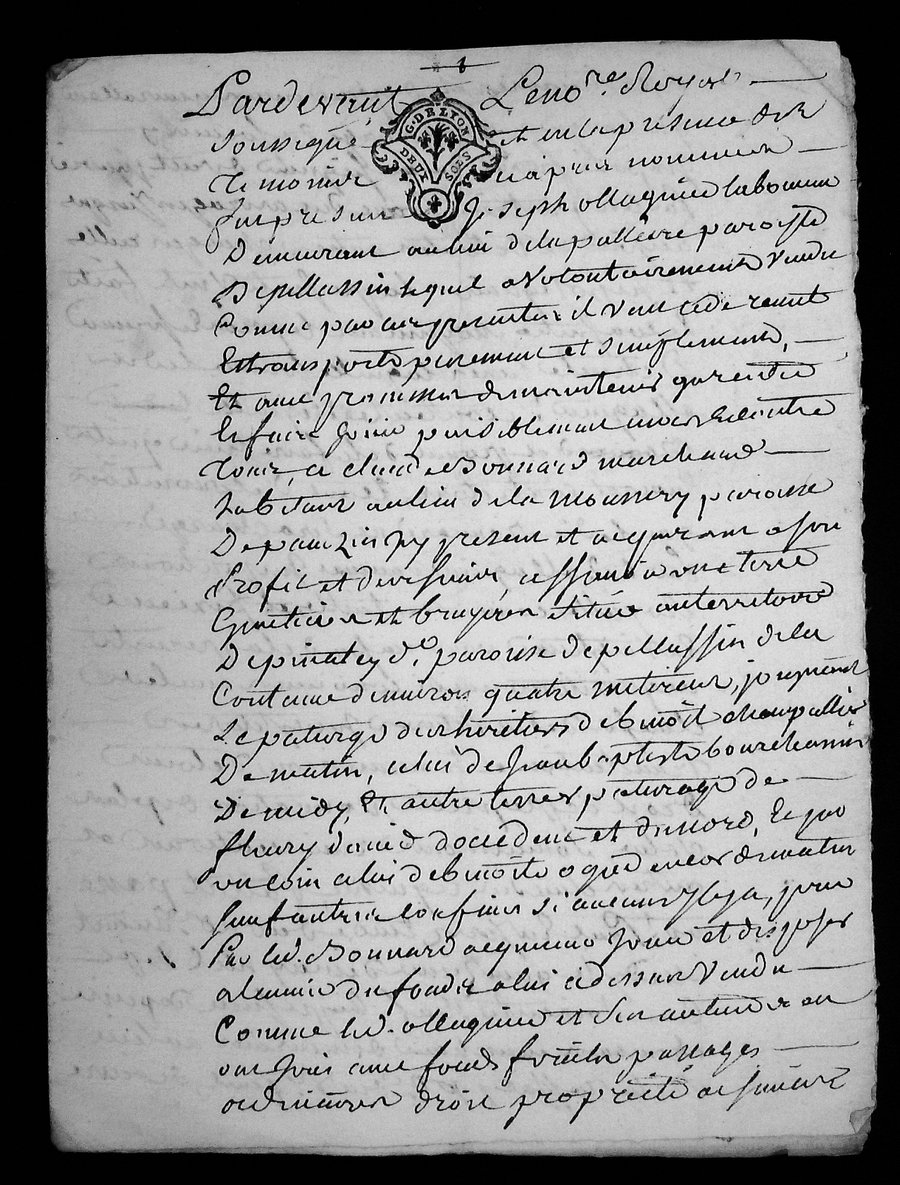 1
Pardevant Le no.re Royal
G. DE LYON
DEUX SOLS
soussigné et en la presence des
temoins cy apres nommés
fut present Joseph ollagnier laboureur
Demeurant au lieu de la paroisse
De pellassin lequel a volontairement vendu
Comme par ces presentes il vend cede remet
Et transporte purement et simplement,
Et avec promesse de maintenir garentir
Et faire jouir paisiblement envers et contre
tous, a claude Bonnard marchand
habitant au lieu de la paroisse
De icy present et acquerant a son
Profit et des siens, a sçavoir une terre
et bruyeres située au territoire
De d.e paroisse de pellassin de la
Contenue d'environ quatre joignant
Le paturage des heritiers de benoit
De matin, celui de Jean baptiste
De midy, Et autre terre et paturage de
fleury d'occident et du nord, Et par
un coin celui de benoit encor de matin
sauf autres confins si aucuns il y a, pour
Par led. Bonnard acquereur jouir et disposer
a l'avenir du fonds a lui cy dessus vendu
Comme led. ollagnier et ses auteurs en
ont joui avec fonds passages
droit propriété